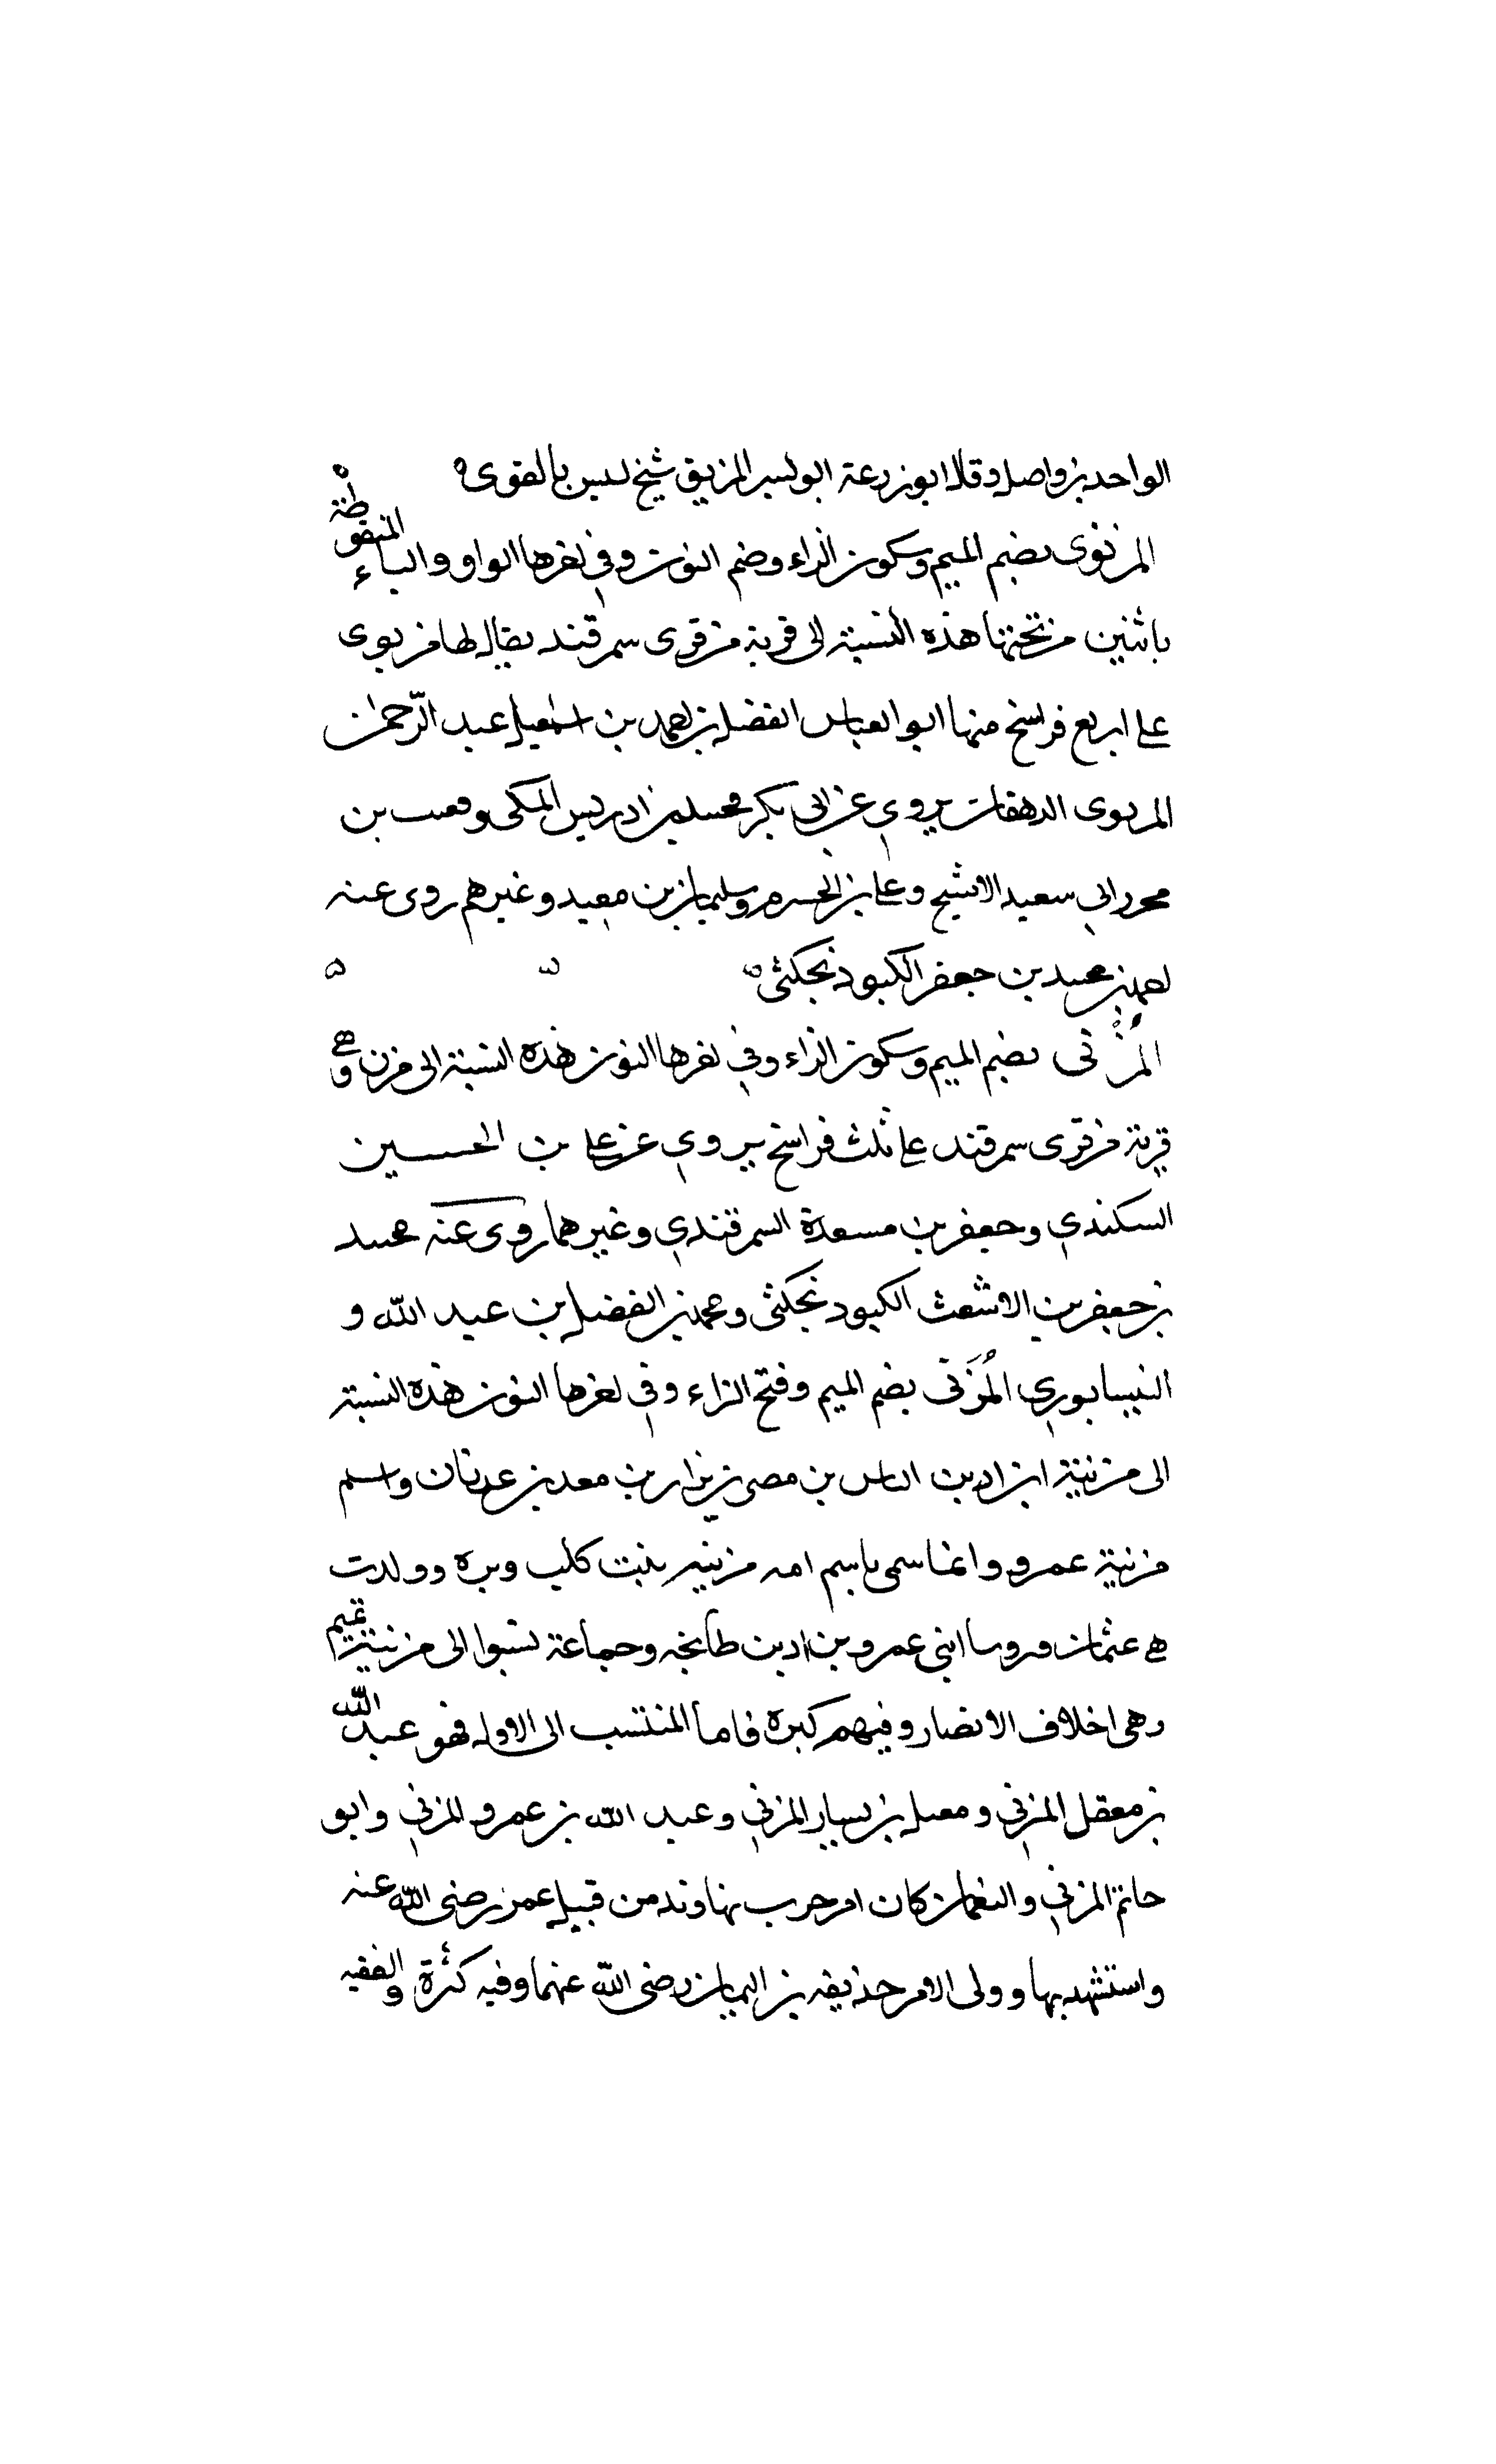 الواحد بن واصل وقال ابو زرعة ابو بشر المزيق شيخ ليس بالقوى
المزنوى بضم الميم وسكون الزاء وضم النون وفي اخرها الواو والياء المنقوطة
باثنين من تحتها هذه النسبة الى قرية من قرى سمرقند يقال لها مزنوى
على اربع فراسخ منها ابو العباس الفضل بن احمد بن اسمعيل عبد الرحمن
المزنوى الدهقان يروي عن ابي بكر محمد بن ادريس المكى و بن
ابي سعيد الاشج وعلى بن خشرم وسليمان بن معبد وغيرهم روى عنه
احمد بن محمد بن جعفر الكبوذنجكثى
المُزْنى بضم الميم وسكون الزاء وفي اخرها النون هذه النسبة الى مزن وهى
قرية من قرى سمرقند على ثلث فراسخ يروي عن على بن الحسين
السكندي وجعفر بن مسعدة السمرقندي وغيرهما روى عنه محمد
بن جعفر بن الاشعث الكبوذنجكثى ومحمد بن الفضل بن عبد الله و
النيسابوري المُزَنى بضم الميم وفتح الزاء وفي اخرها النون هذه النسبة
الى مزينة ابن اد بن الناس بن مضى نزار بن معد بن عدنان واسم
مزينة عمرو وانما سمى باسم امه مزينه بنت كلب وبره وولدت
هى عثمان و ابنى عمرو بن اد بن طابخه وجماعة نسبوا الى مزينة تميم
وهى اخلاف الانصار وفيهم كبره فاما المنتسب الى الاول فهو عبد الله
بن معقل المزني ومعقل بن يسار المزني وعبد الله بن عمرو المزني وابو
حاتم المزني والنعمان كان امر حرب نهاوند من قبل عمر رضى الله عنه
واستشهد بها وولى الامر حذيفه بن اليمان رضى الله عنهما وفيه كثرة والفقيه